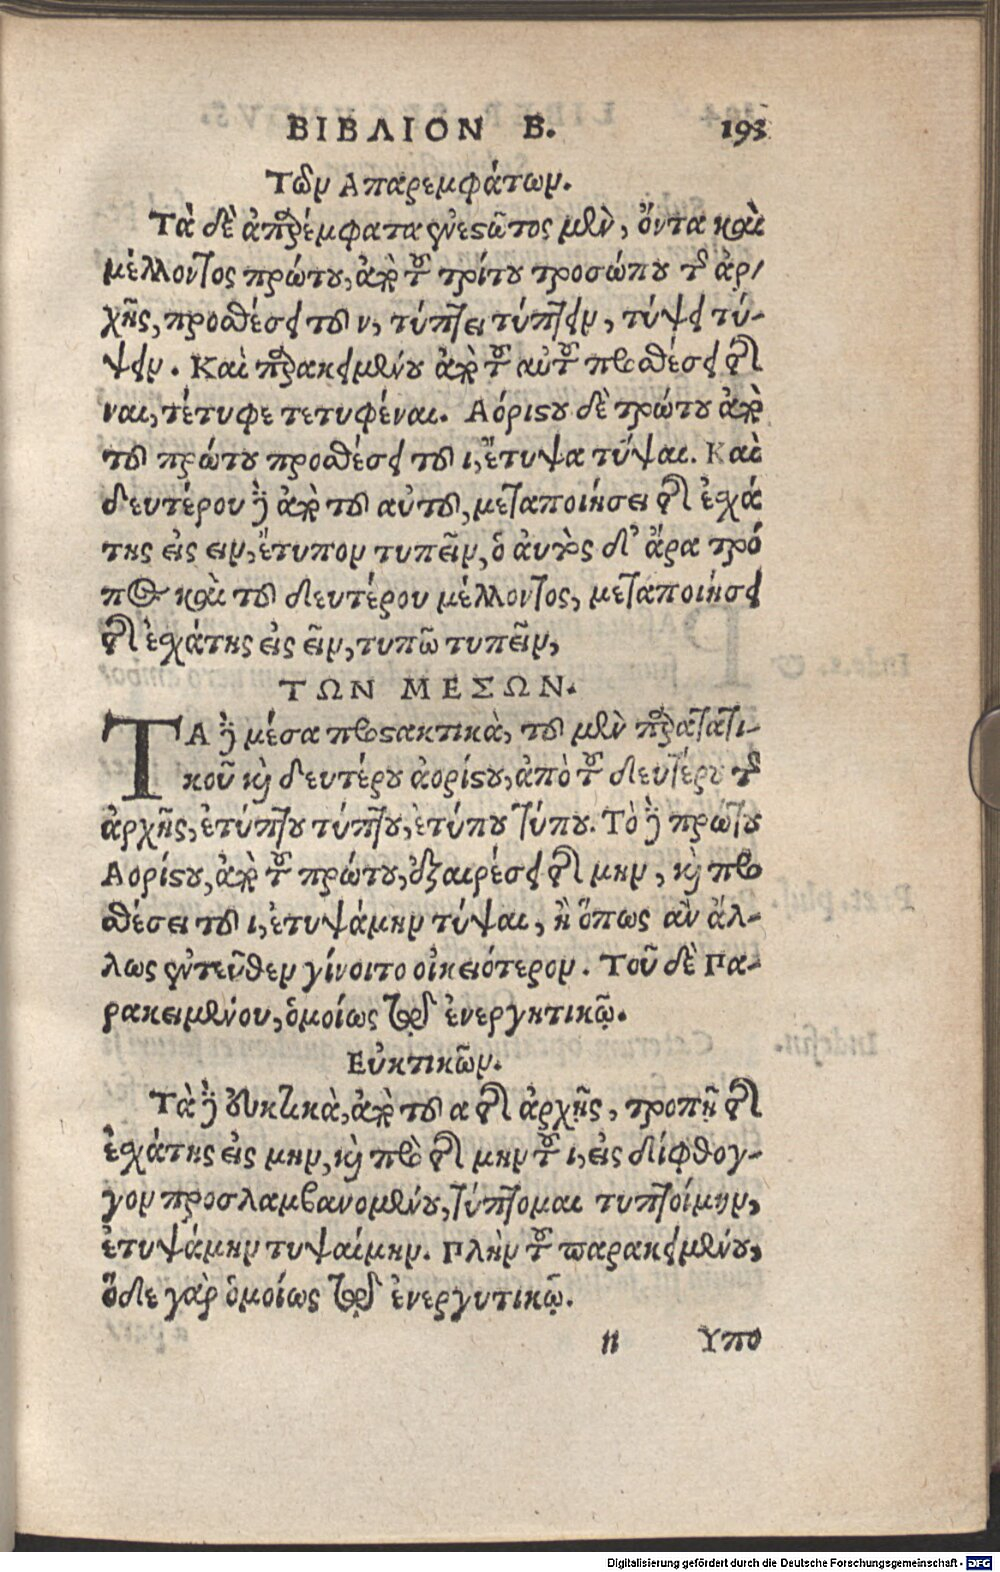 ΒΙΒΛΙΟΝ Β. 193
Τῶν Απαρεμφάτων.
Τὰ δὲ ἀπαρέμφατα ἐνεστῶτος μὲν, ὄντα καὶ
μέλλοντος πρώτου, ἀπὸ τοῦ τρίτου προσώπου τῆς ἀρ/
χῆς, προσθέσει τοῦ ν, τύπτει τύπτειν, τύψει τύ-
ψειν. Καὶ παρακειμένου ἀπὸ τοῦ αὐτοῦ προσθέσει τῆς
ναι, τέτυφε τετυφέναι. Αόριστου δὲ πρώτου ἀπὸ
τοῦ πρώτου προσθέσει τοῦ ι, ἔτυψα τύψαι. Καὶ
δευτέρου δὲ ἀπὸ τοῦ αὐτοῦ, μεταποιήσει τῆς ἐσχά
της εἰς ειν, ἔτυπον τυπεῖν, ὁ αὐτὸς δ' ἄρα τρό
πος καὶ τοῦ δευτέρου μέλλοντος, μεταποιήσει
τῆς ἐσχάτης εἰς εῖν, τυπῶ τυπεῖν,
ΤΩΝ ΜΕΣΩΝ.
ΤΑ δὲ μέσα προστακτικὰ, τοῦ μὲν παρατατι-
κοῦ καὶ δευτέρου ἀορίστου, ἀπὸ τοῦ δευτέρου τῆς
ἀρχῆς, ἐτύπτου τύπτου, ἐτύπου τύπου. Τὸ δὲ πρώτου
Αορίστου, ἀπὸ τοῦ πρώτου, ἐξαιρέσει τῆς μην, καὶ προ
θέσει τοῦ ι, ἐτυψάμην τύψαι, ἢ ὅπως ἂν ἄλ-
λως ἐντεῦθεν γίνοιτο οἰκειότερον. Τοῦ δὲ Πα-
ρακειμένου, ὁμοίως τῷ ἐνεργητικῷ.
Εὐκτικῶν.
Τὰ δὲ εὐκτικὰ, ἀπὸ τοῦ α τῆς ἀρχῆς, τροπῇ τῆς
ἐσχάτης εἰς μην, καὶ πρὸ τῆς μην τοῦ ι, εἰς δίφθογ-
γον προσλαμβανομένου, τύπτομαι τυπτοίμην,
ἐτυψάμην τυψαίμην. Πλὴν τοῦ παρακειμένου,
ὅδε γὰρ ὁμοίως τῷ ἐνεργυτικῷ.
n Υπο
Digitalisierung gefördert durch die Deutsche Forschungsgemeinschaft - DFG